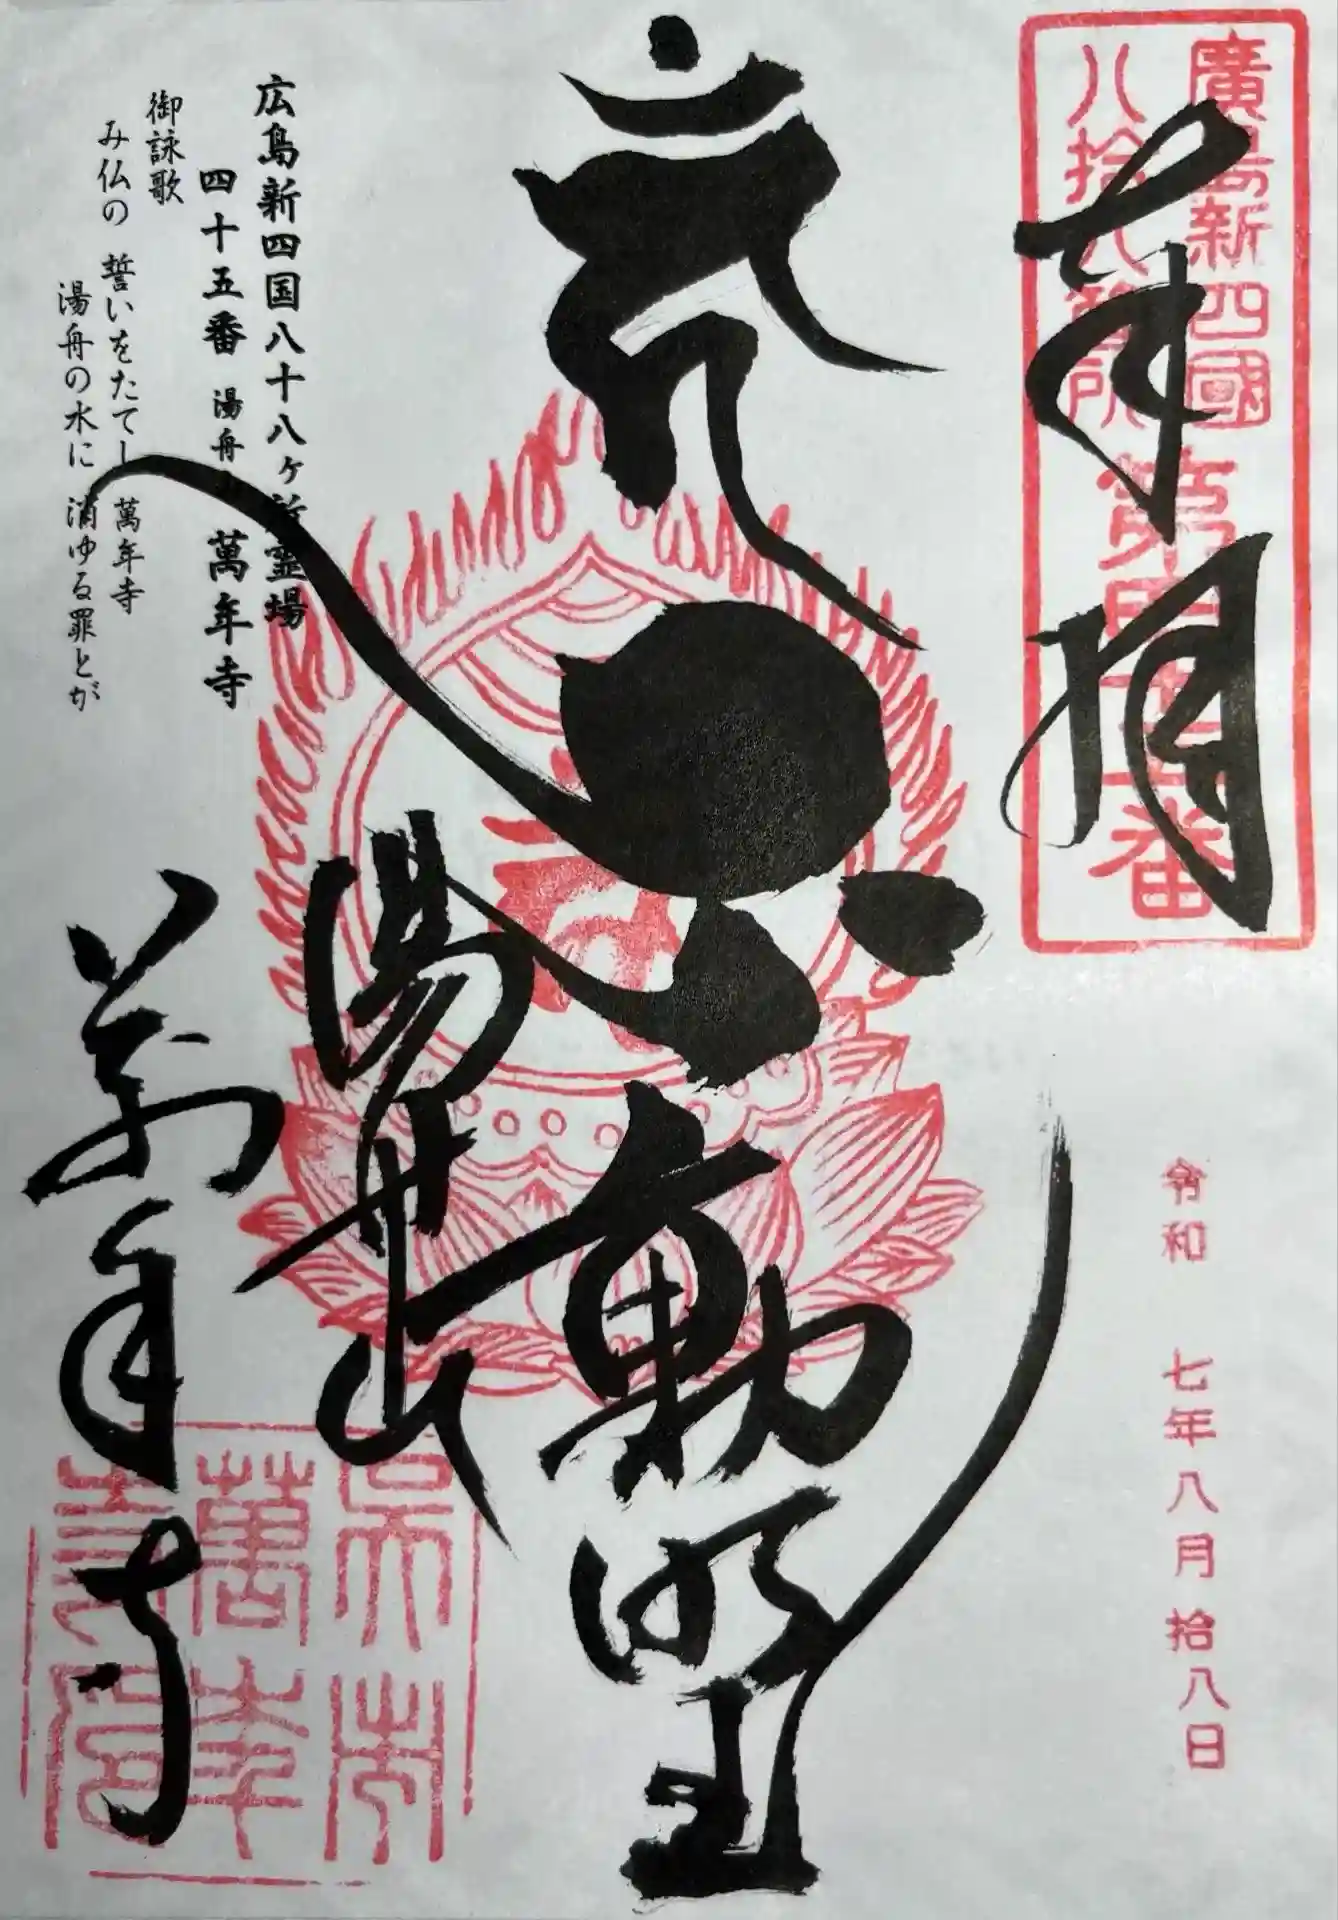 廣島新四國
八拾八箇所
第四十五番
奉拝
令和 七年八月拾八日
不動明王
湯舟山
萬年寺
広島新四国八十八ヶ所霊場
四十五番 湯舟山 萬年寺
御詠歌
み仏の 誓いをたてし 萬年寺
湯舟の水に 消ゆる罪とが
呉市
萬年
寺印